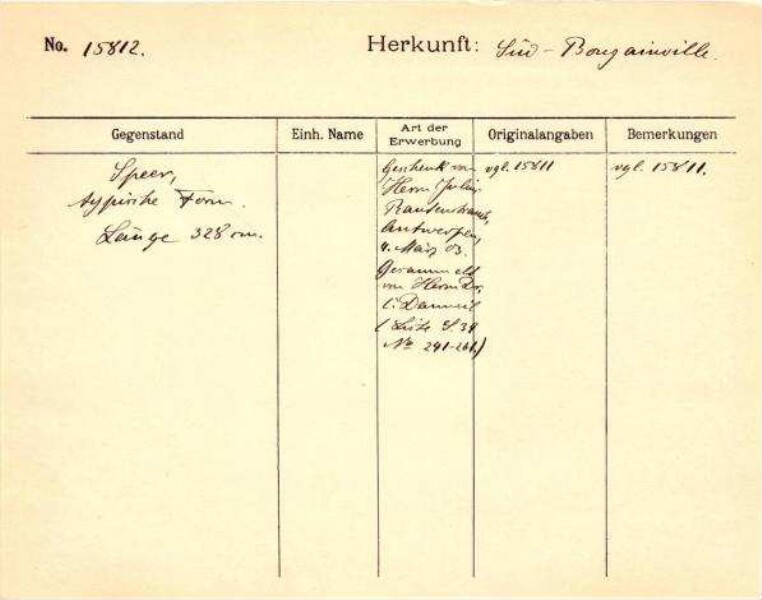 No. 15812.
Herkunft: Süd-Bougainville.
Gegenstand
Einh. Name
Art der Erwerbung
Originalangaben
Bemerkungen
Speer,
typische Form.
Länge 328 cm.
Geschenk von
Herrn
Rautenstrauch,
Antwerpen,
4. März 03.
Gesammelt
von Herrn Dr.
(Liste S. 34
No 241-261)
vgl. 15811
vgl. 15811.